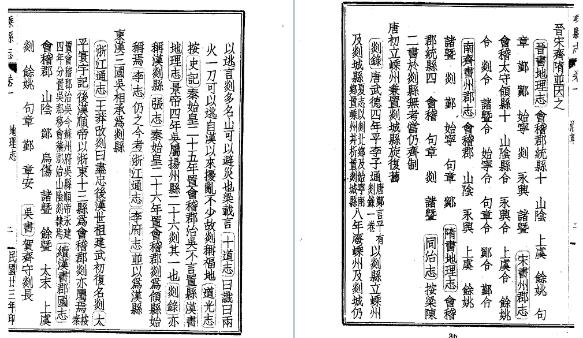 以逃言剡多名山可以避災也梁載言十道志曰讖曰兩
火一刀可以逃自漢以來擾亂不少故剡稱福地道光志
按史記秦始皇二十五年置會稽郡治吳不言置縣漢書
地理志景帝四年吳屬揚州縣二十六剡其一也剡錄亦
稱漢剡縣張志秦始皇二十六年置會稽郡剡爲領縣始
稱焉李志仍之今考浙江通志李府志並以爲漢縣
東漢三國吳相承爲剡縣
浙江通志王莽改剡曰盡忠後漢世祖建武初復名剡太
平寰宇記後漢順帝以浙東十三縣爲會稽郡剡亦屬焉
置會稽郡治吳今蘇州府吳縣順帝永建
四年分置吳郡會稽郡治山陰剡隸焉續漢書郡國志
會稽郡 山陰 鄮 烏傷 諸暨 餘暨 太末 上虞
剡 餘姚 句章 鄞 章安 吳書賀齊守剡長
嵊縣志 卷一 地理志 二 民國廿三年印
晉宋齊隋並因之
晉書地理志會稽郡統縣十 山陰 上虞 餘姚 句
章 鄞 鄮 始寧 剡 永興 諸暨 宋書州郡志
會稽太守領縣十 山陰令 永興令 上虞令 餘姚
令 剡令 諸暨令 始寧令 句章令 鄮令 鄞令
南齊書州郡志會稽郡 山陰 永興 上虞 餘姚
諸暨 剡 鄞 始寧 句章 鄮 隋書地理志會稽
郡統縣四 會稽 句章 剡 諸暨 同治志按梁陳
二書於剡縣無考當仍齊制
唐初立嵊州兼置剡城縣旋復舊
剡錄唐武德四年平李子通以剡縣立嵊州
及剡城縣 八年廢嵊州及剡城仍